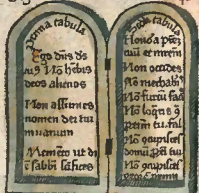 Prima tabula
Ego dns ds
tuus Nō hebis
deos alienos
Non assumes
nomen dei tui
in uanum
Memēto ut di
ē sabbi sāfices
Scda tabula
Honora p̄rez
tuū et mr̄em
Non occides
Nō mechabis
Nō furtū fac
Nō loq̄ris ꝯ
p̄xm tu. fal
Nō ꝯcupisces
domū p̄xi tui
Nō ꝯcupisces